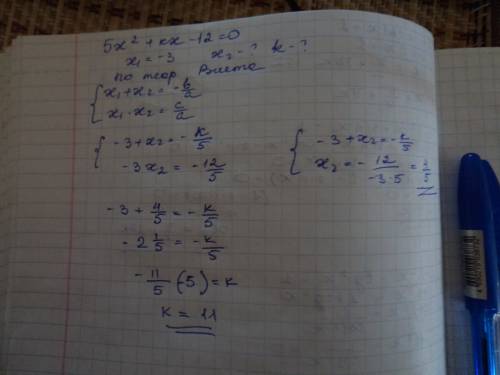 5x² + kx - 12 = 0
x₁ = -3   x₂ - ?   k - ?
по теор. Виета
{ x₁ + x₂ = -b/a
x₁ · x₂ = c/a
{ -3 + x₂ = -k/5
-3x₂ = -12/5
{ -3 + x₂ = -k/5
x₂ = -12/(-3·5) = 4/5
-3 + 4/5 = -k/5
-2 1/5 = -k/5
-11/5 (-5) = k
k = 11